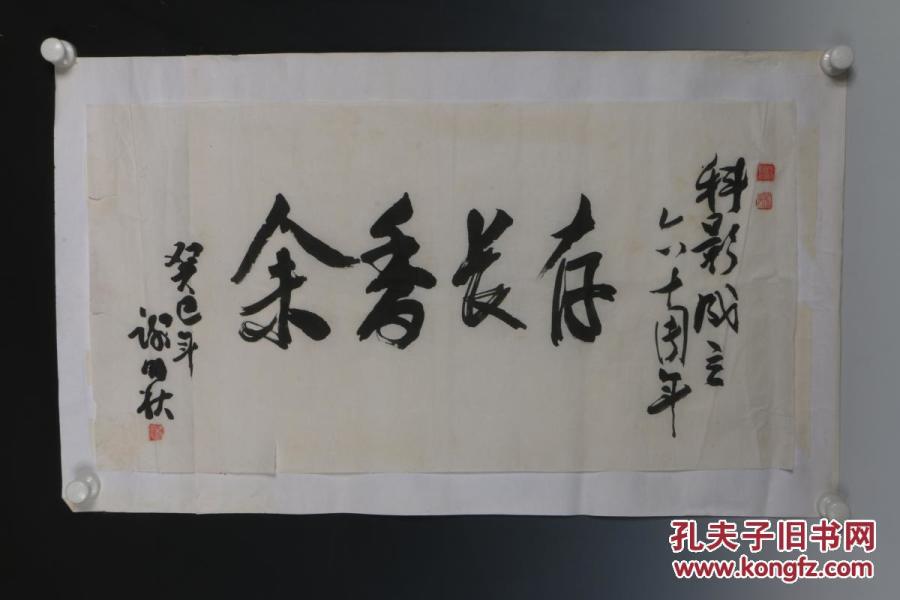 科影成立
六十周年
余香长存
癸巳年
孔夫子旧书网
www.kongfz.com